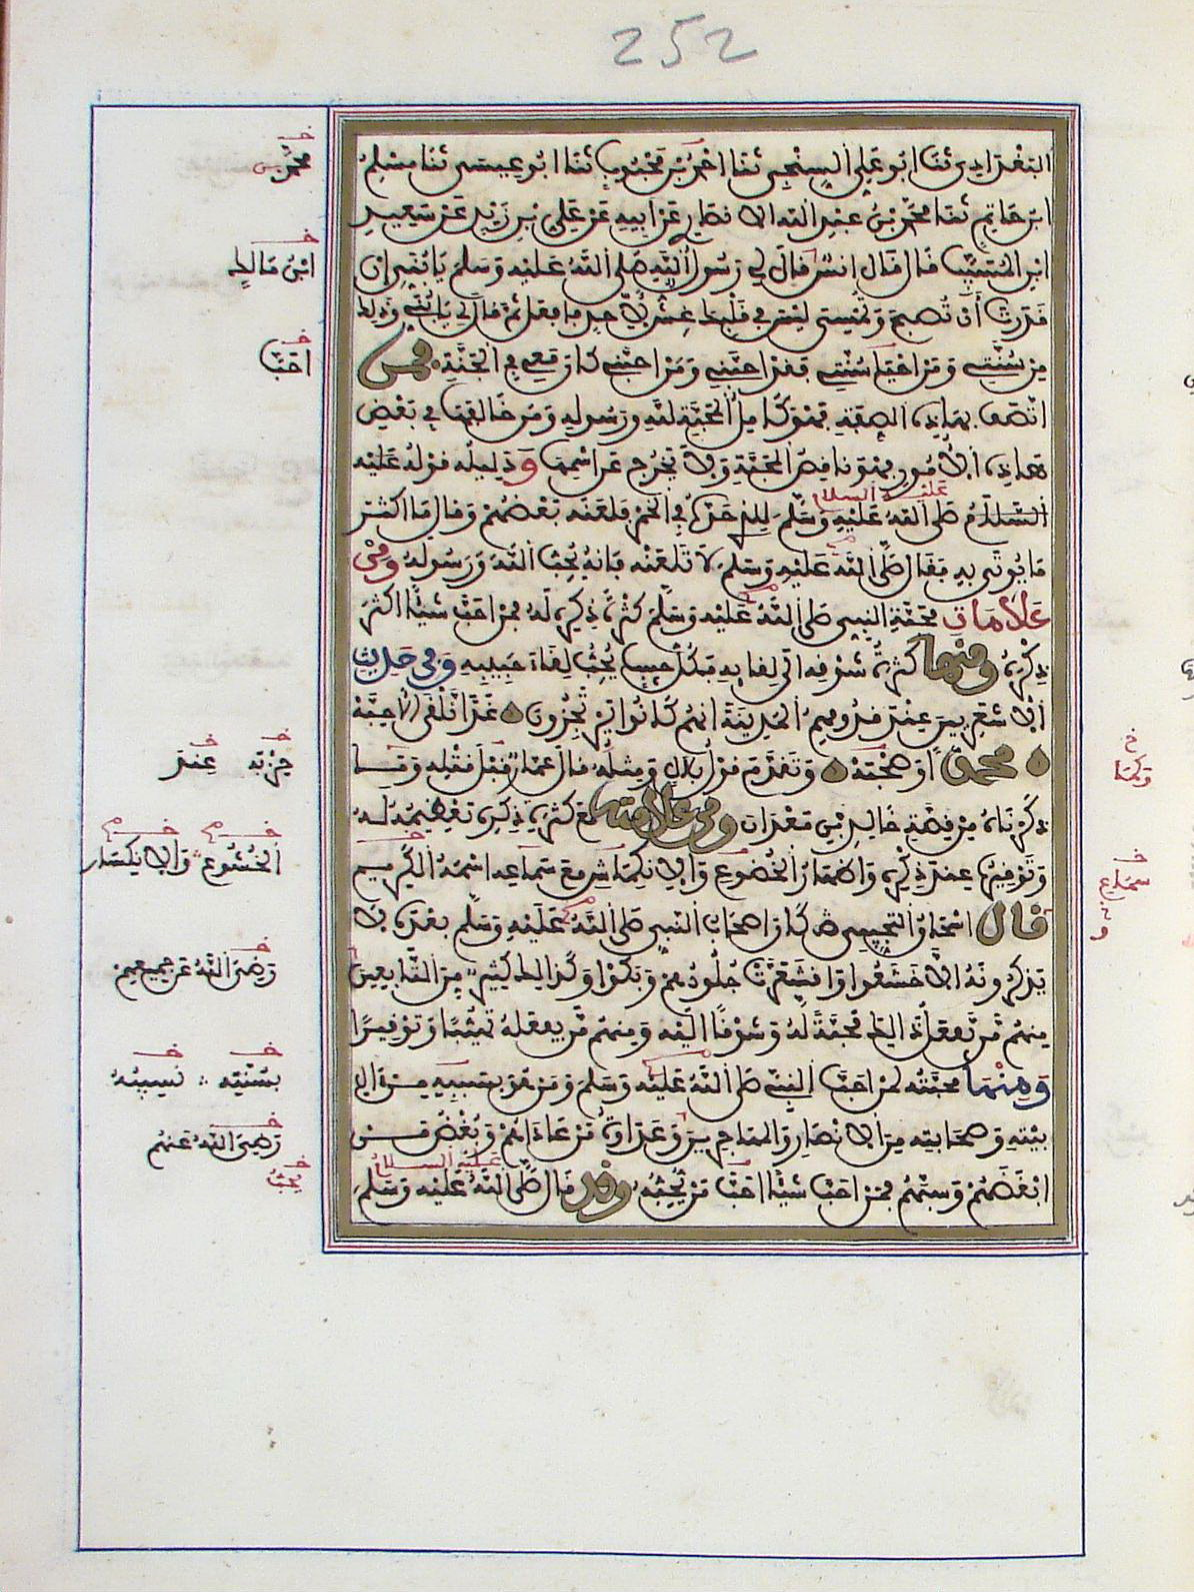 252
البغدادي ثنا ابو علي السنجي ثنا احمد بن محبوب ثنا ابو عيسى ثنا مسلم
ابن حاتم ثنا محمد بن عبد الله الانصاري عن ابيه عن علي بن زيد عن سعيد
ابن المسيب قال قال انس قال لي رسول الله صلى الله عليه وسلم يا بني ان
قدرت أن تصبح وتمسي ليس في قلبك غش لأحد فافعل ثم قال لي يا بني وذلك
من سنتي ومن احيا سنتي فقد احبني ومن احبني كان معي في الجنة فمن
اتصف بهاذه الصفة فهو كامل المحبة لله ورسوله ومن خالفها في بعض
هاذه الأمور فهو ناقص المحبة ولا يخرج عن اسمها ودليله قوله عليه
عليه السلام
السلام صلى الله عليه وسلم للذي حده في الخمر فلعنه بعضهم وقال ما اكثر
ما يوتى به فقال صلى الله عليه وسلم لا تلعنه فانه يحب الله ورسوله ومن
علامات محبة النبي صلى الله عليه وسلم كثرة ذكره له فمن احب شيئا اكثر
ذكره ومنها كثرة شوقه الى لقايه فكل حبيب يحب لقاء حبيبه وفي حديث
الاشعريين عند قدومهم المدينة انهم كانوا يرتجزون غدا نلقى الاحبة
محمدا وصحبه وتقدم قول بلال ومثله قال عمار قبل قتله وما
ذكرناه من قصة خالد بن معدان ومن علامته مع كثرة ذكره تعظيمه له
وتوقيره عند ذكره واظهار الخضوع والانكماش مع سماعه اسمه الكريم
قال اسحاق التجيبي كان اصحاب النبي صلى الله عليه وسلم بعده لا
يذكرونه الا خشعوا واقشعرت جلودهم وبكوا وكذلك كثير من التابعين
منهم من يفعل ذلك محبة له وشوقا اليه ومنهم من يفعله تهيبا وتوقيرا
ومنها محبته لمن احب النبي صلى الله عليه وسلم ومن هو بسببه من ال
بيته وصحابته من الانصار والمهاجرين وعداوة من عاداهم وبغض من
عليه السلام
ابغضهم وسبهم فمن احب شيئا احب من يحبه وقد قال صلى الله عليه وسلم
محمد بن
ابن مالك
احب
حزبه عند
الخشوع والانكسار
رضي الله عن جميعهم
بسنته نسبه
رضي الله عنهم
يحب
وكما
سماع